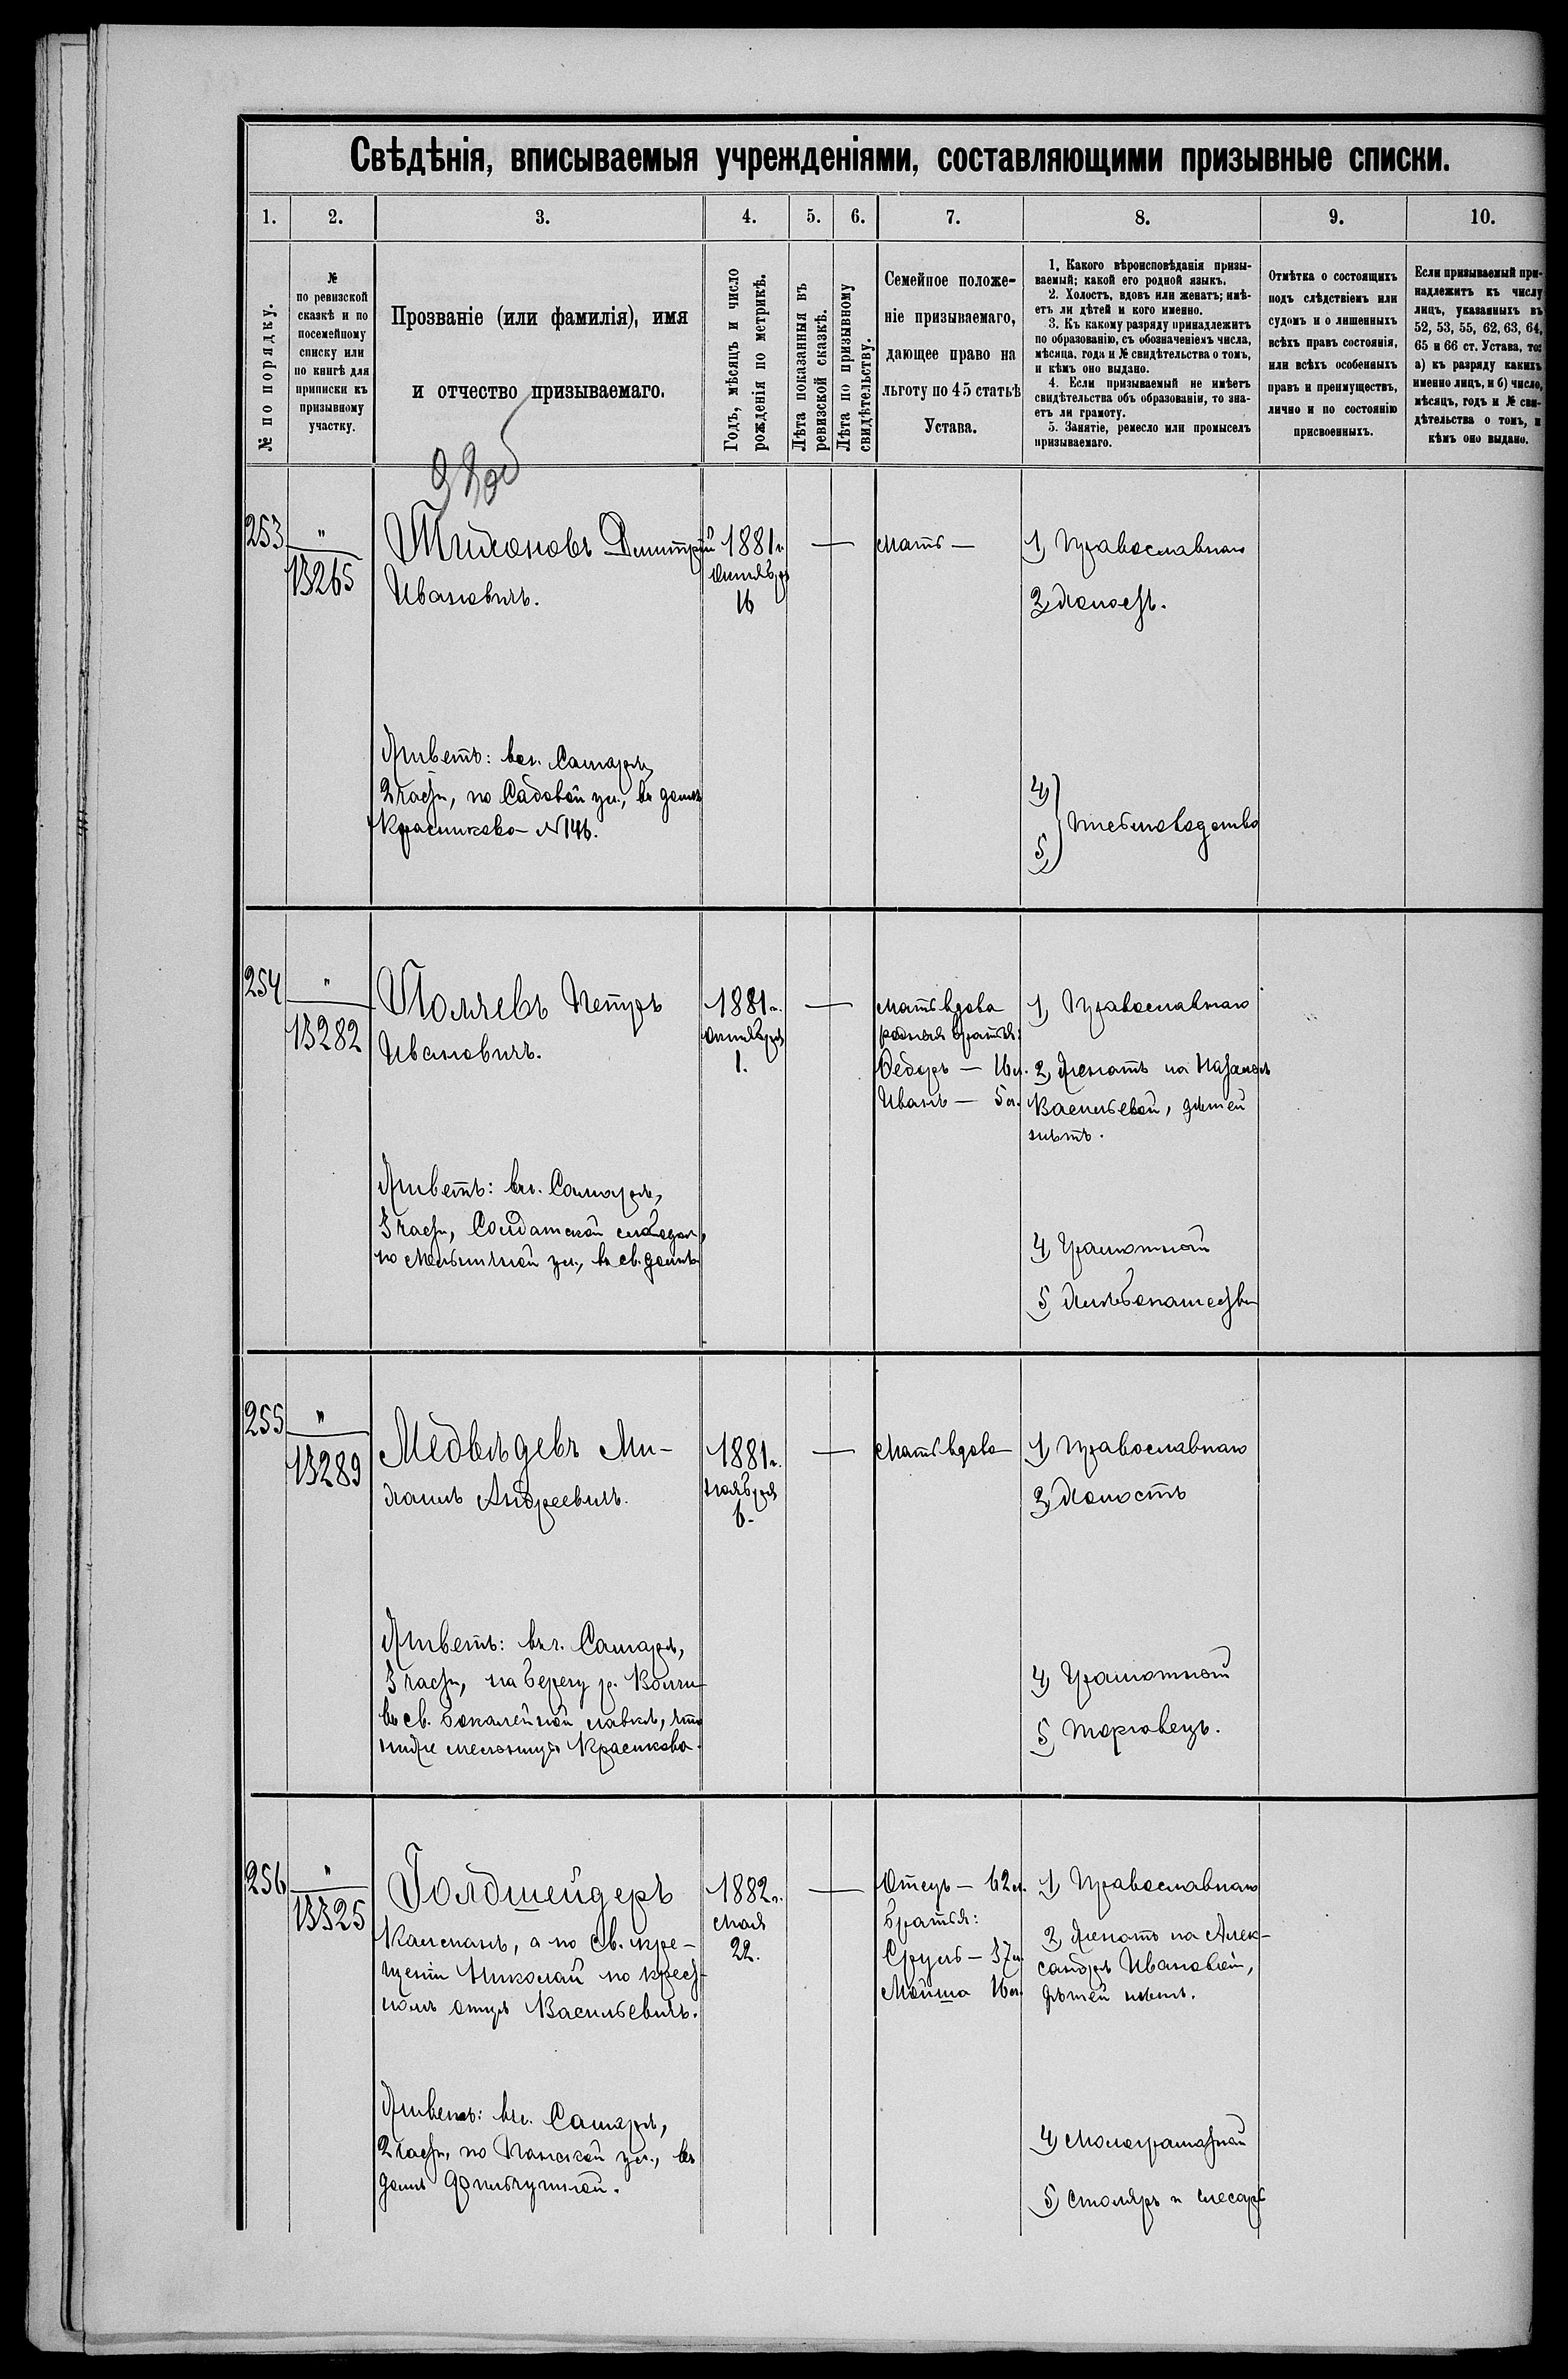 Свѣдѣнія, вписываемыя учрежденіями, составляющими призывные списки.
1. 2. 3. 4. 5. 6. 7. 8. 9. 10.
№ по порядку.
№
по ревизской
сказкѣ и по
посемейному
списку или
по книгѣ для
приписки къ
призывному
участку.
Прозваніе (или фамилія), имя
и отчество призываемаго.
Годъ, мѣсяцъ и число
рожденія по метрикѣ.
Лѣта показанныя въ
ревизской сказкѣ.
Лѣта по призывному
свидѣтельству.
Семейное положе-
ніе призываемаго,
дающее право на
льготу по 45 статьѣ
Устава.
1. Какого вѣроисповѣданія призы-
ваемый; какой его родной языкъ.
2. Холостъ, вдовъ или женатъ; имѣ-
етъ ли дѣтей и кого именно.
3. Къ какому разряду принадлежитъ
по образованію, съ обозначеніемъ числа,
мѣсяца, года и № свидѣтельства о томъ,
и кѣмъ оно выдано.
4. Если призываемый не имѣетъ
свидѣтельства объ образованіи, то зна-
етъ ли грамоту.
5. Занятіе, ремесло или промыселъ
призываемаго.
Отмѣтка о состоящихъ
подъ слѣдствіемъ или
судомъ и о лишенныхъ
всѣхъ правъ состоянія,
или всѣхъ особенныхъ
правъ и преимуществъ,
лично и по состоянію
присвоенныхъ.
Если призываемый при-
надлежитъ къ числу
лицъ, указанныхъ въ
52, 53, 55, 62, 63, 64,
65 и 66 ст. Устава, то:
а) къ разряду какихъ
именно лицъ, и б) число,
мѣсяцъ, годъ и № сви-
дѣтельства о томъ, и
кѣмъ оно выдано.
253
"
13265
Тихоновъ Дмитрій
Ивановичъ.
1881 г.
Октября
16
—
Мать —
1) Православнаго
2) Холостъ.
Живетъ: въ г. Самарѣ,
2 части, по Садовой ул., въ домѣ
Красикова № 146.
4)
5)
254
"
13282
Ивановичъ.
Петръ
1881 г.
Октября
1.
—
Мать вдова
родныя братья:
Ѳедоръ — 16 л.
Иванъ — 5 л.
1) Православнаго
2) Женатъ на
Васильевой, дѣтей
нѣтъ.
Живетъ: въ г. Самарѣ,
3 части, Солдатской слободѣ,
по Мельничной ул., въ св. домѣ
4) Грамотный
5) Хлѣбопашество
255
"
13289
Медвѣдевъ Ми-
хаилъ Андреевичъ.
1881 г.
Ноября
6.
—
Мать вдова
1) Православнаго
2) Холостъ
Живетъ: въ г. Самарѣ,
3 части, на берегу р. Волги
въ св. бакалейной лавкѣ, что
ниже мельницы Красикова.
4) Грамотный
5) Торговецъ.
256
"
13325
Голдшейдеръ
Калманъ, а по св. кре-
щеніи Николай по крест-
номъ отцѣ Васильевичъ.
1882 г.
Мая
22.
—
Отецъ — 62 л.
братья:
Сруль — 37 л.
Мойша 16 л.
1) Православнаго
2) Женатъ на Алек-
сандрѣ Ивановой,
дѣтей нѣтъ.
Живетъ: въ г. Самарѣ,
2 части, по Панской ул., въ
домѣ
4) Малограмотный
5) Столяръ и слесарь